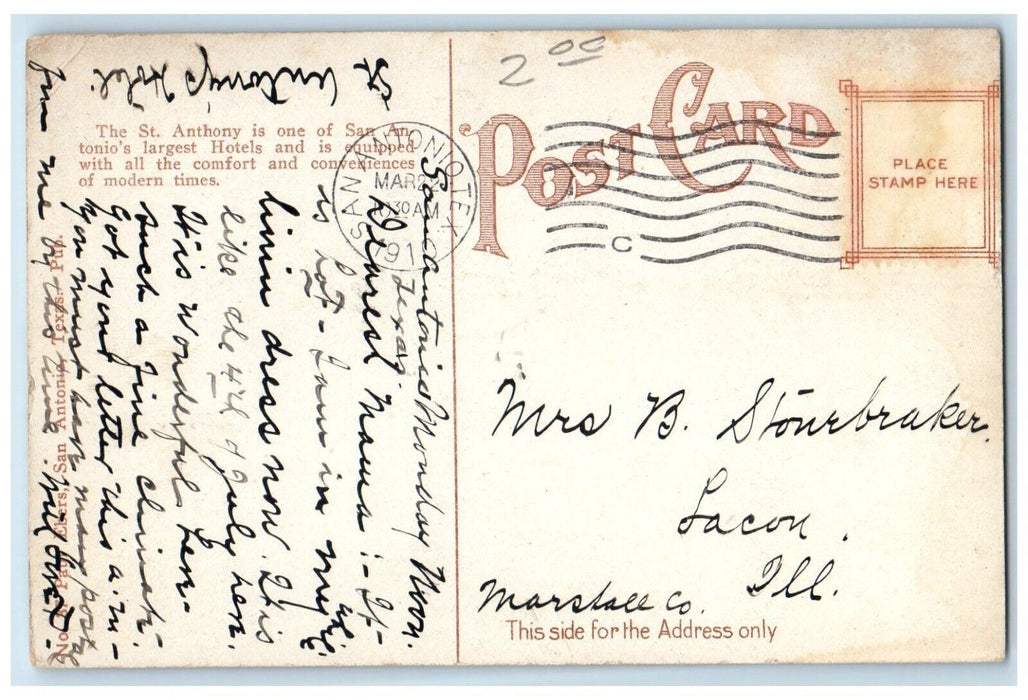 2 00
POST CARD
PLACE
STAMP HERE
SAN ANTONIO TEX
MAR 2
30 AM
191
C
The St. Anthony is one of San An-
tonio's largest Hotels and is equipped
with all the comfort and conveniences
of modern times.
St Antony's Hotel
San Antonio Monday Noon.
Texas.
Dearest Mama:- It
is hot - I am in my
linin dress now. It is
like the 4th of July here.
It is wonderful here.
Such a fine climate.
Got your letter this a.m.
You must have many postal
from me by this time.
Peters, San Antonio, Texas. Pub.
Mrs B. Stourbraker.
Lacon,
Ill.
Marshall Co.
This side for the Address only